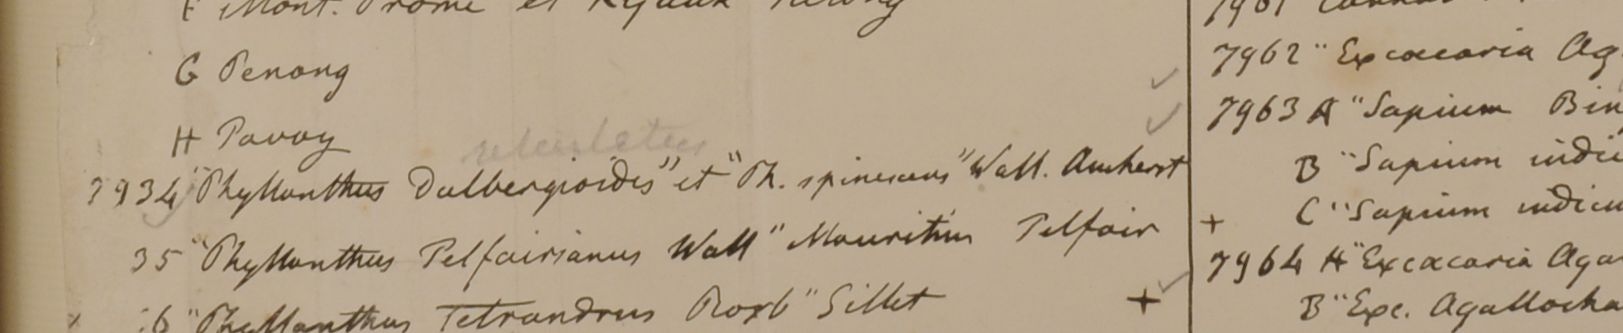 F Mont. Prome et
G Penang
H Tavoy
7934 "Phyllanthus Dalbergioides" et "Ph. spinescens" Wall. Amherst
35 "Phyllanthus Telfairianus Wall" Mauritius Telfair
36 "Phyllanthus Tetrandrus Roxb" Sillet +
7961
7962 " Excaecaria Ag
7963 A "Sapium Bin
B "Sapium indic
+ C "Sapium indicu
7964 A "Excaecaria Aga
B "Exc. Agallocha